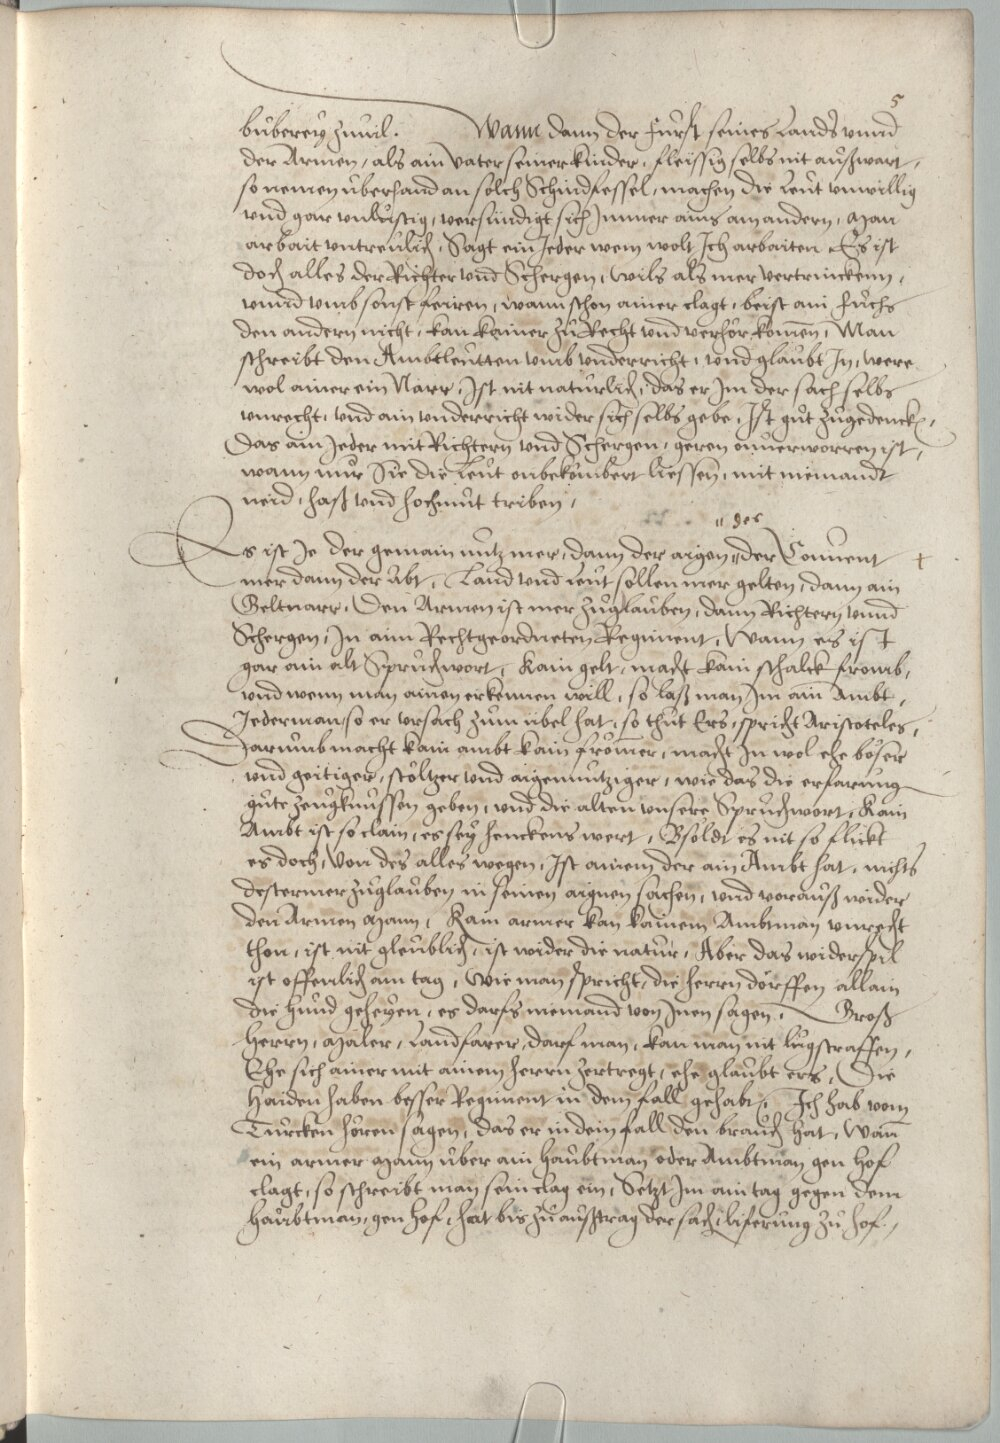 5
büberey zuuil. Wann dann der Fürst seines Lands vnnd
der Armen, als ain Vater seiner kinder, fleissig selbs nit außwart,
so nemen überhand an solch Schindfessel, machen die Leüt vnwillig
vnd gar vnlüstig, versündigt sich Immer ains am andern, Man
arbait vntreülich, Sagt ein Jeder wem wolt Ich arbaiten Es ist
doch alles der Richter vnd Schergen, wils als mer vertrinckenn,
vnnd vmb sonst feiren, wann schon ainer clagt, beist ain fuchs
den andern nicht, kan kainer zu Recht vnd verhör komen, Man
schreibt den Ambtleütten vmb vnderricht, vnd glaubt In, were
wol ainer ein Narr, Ist nit natürlich, das er Im der sach selbs
vnrecht, vnd ain vnderricht wider sich selbs gebe, Ist gut zugedencken,
Das ain Jeder mit Richtern vnd Schergen, geren onuerworren ist,
wann nur Sie die Leüt onbekömbert liessen, mit niemandt
neid, haß vnd hochmüt triben,
" des
Es ist Je der gemain nutz mer, dann der aigen " der Conuent +
mer dann der Abt, Land vnd Leüt sollen mer gelten, dann ain
Geltnarr, Den Armen ist mer zuglauben, dann Richtern vnnd
Schergen, In aim Rechtgeordneten Regiment, Wann es ist
gar ain alt Spruchwort, Kain gelt, macht kain schalck fromb,
vnd wenn man ainen erkennen will, so laß man Im ain Ambt,
Jederman, so er vrsach zum übel hat, so thut Ers, spricht Aristoteles,
Darumb macht kain ambt kain frömer, macht In wol ehe böser
vnd geitiger, stöltzer vnd aigennütziger, wie das die erfarung
gute zeugknussen geben, vnd die alten vnsere Spruchwort, Kain
Ambt ist so clain, es sey henckens wert, Bsoldt es nit so flickt
es doch, Von des alles wegen, Ist ainem der ain Ambt hat, nichts
destermer zuglauben in seinen aignen sachen, vnd vorauß wider
den Armen Mann, Kain armer kan kainem Ambtman vnrecht
thon, ist nit gleüblich, ist wider die natur, Aber das widerspil
ist offenlich am tag, Wie man spricht, die herrn dörffen allain
die hund geheyen, es darfs niemand von Inen sagen, Groß
herrn, Maler, Landfarer, darf man, kan man nit lugstraffen,
Ehe sich ainer mit ainem herrn zertregt, ehe glaubt ers, Die
Haiden haben besser Regiment in dem fall gehabt, Ich hab vom
Türcken hören sagen, das er in dem fall den brauch hat, Wan
ein armer Mann über ain haubtman oder Ambtman gen hof
clagt, so schreibt man sein clag ein, Setzt Im ain tag gegen dem
haubtman, gen hof, hat bis zu außtrag der sach, liferung zu hof,